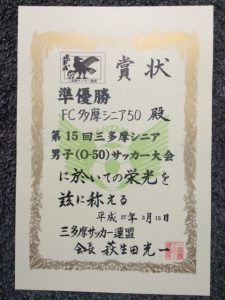 賞状
準優勝
FC多摩シニア50 殿
第15回三多摩シニア
男子(O-50)サッカー大会
に於いての栄光を
茲に称える
平成27年3月15日
三多摩サッカー連盟
会長 萩生田光一